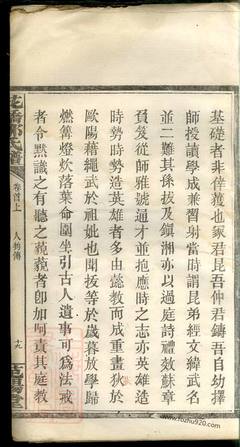 基礎者非倖獲也冢君昆吾仲君鑄吾自幼擇
師授讀學成兼習射當時謂昆弟經文緯武名
並二難其係拔及鎮湘亦以過庭詩禮效蘇章
負笈從師雅號通才並抱應時之志亦英雄造
時勢時勢造英雄者多由懿教而成重畫荻於
歐陽藉繩武於祖妣也聞拔等於歲暮放學歸
燃篝燈炊落葉命圍坐引古人遺事可為法戒
者令默識之有聽之藐藐者卽加呵責其庭教
花橋
氏
卷首上
人物傳
www.jiapu920.com